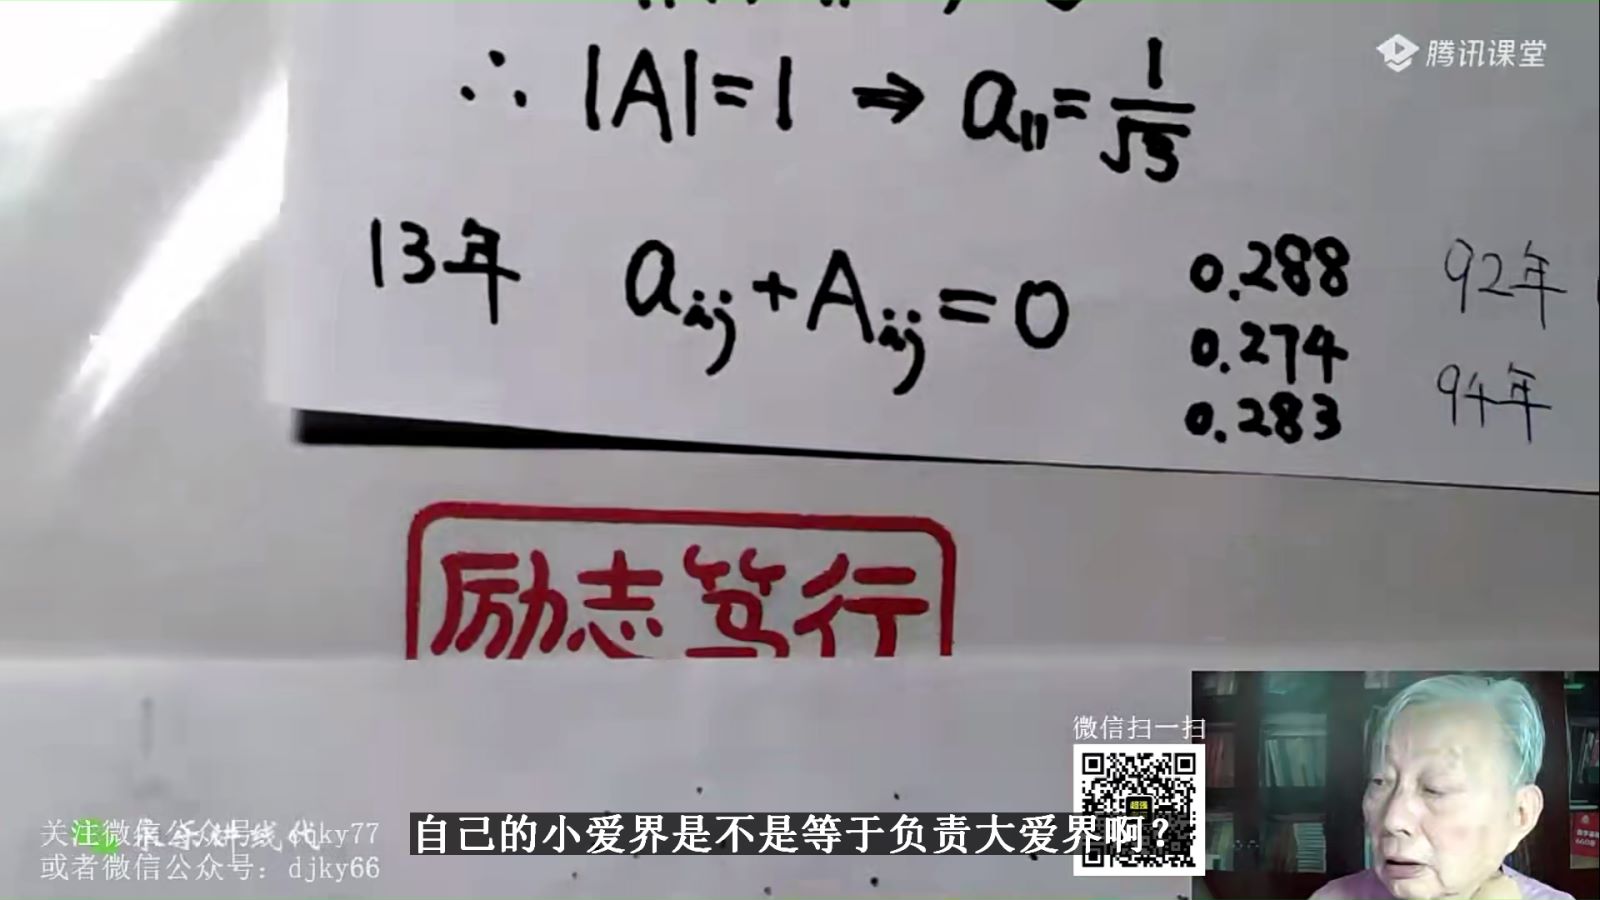 腾讯课堂
∴ |A|=1 ⇒ a₁₁=1/√3
13年 aᵢⱼ+Aᵢⱼ=0
0.288 92年
0.274
0.283 94年
励志笃行
微信扫一扫
关注微信公众号: djky77
或者微信公众号: djky66
自己的小爱界是不是等于负责大爱界啊?